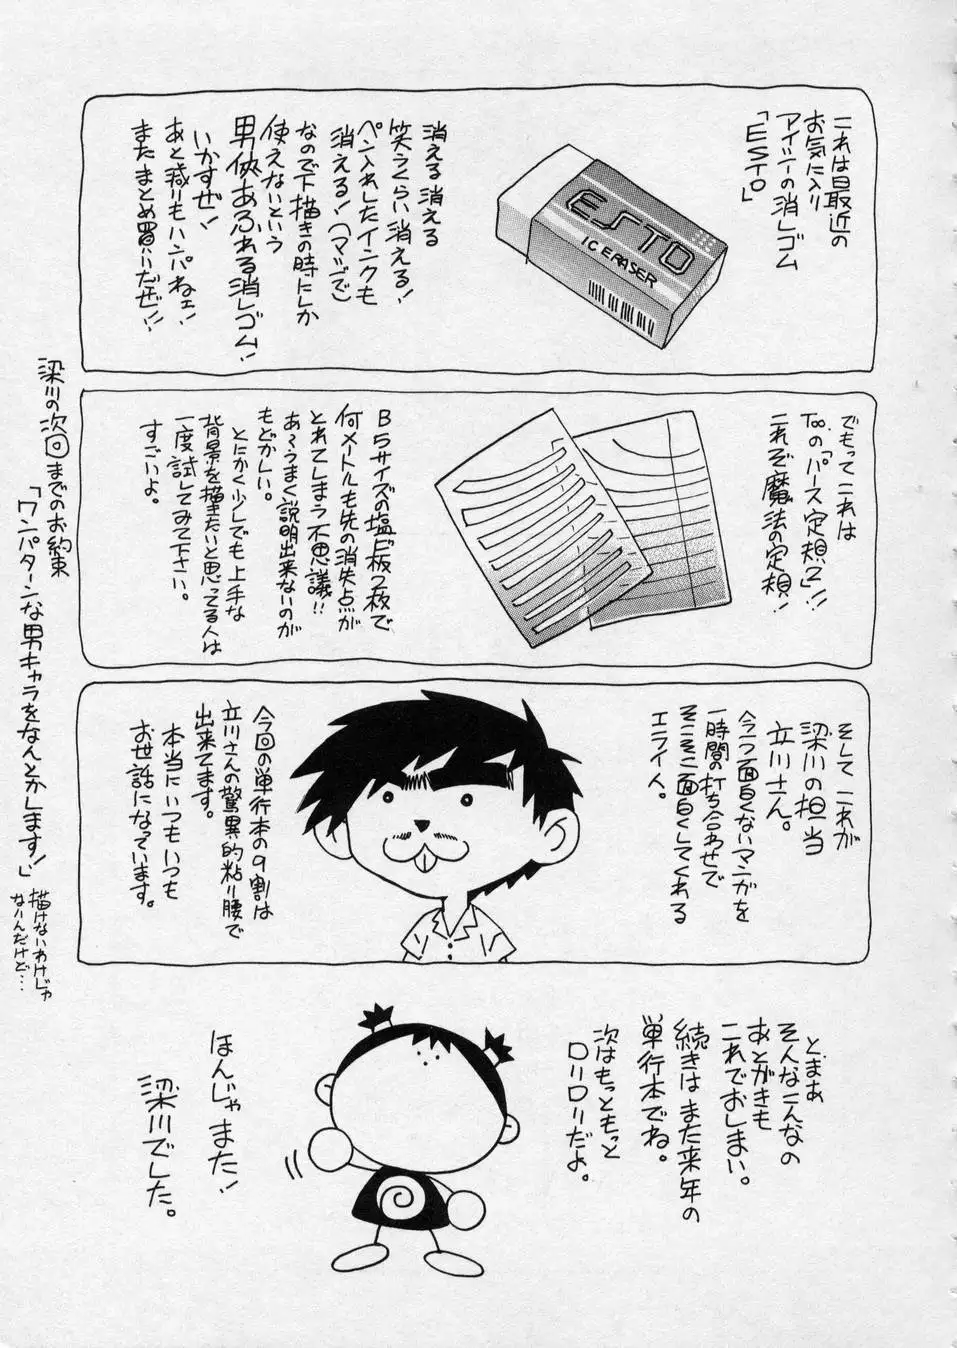 これは最近の
お気に入り
アイシーの消しゴム
「ESTO」
ESTO
ICERASER
消える消える
笑うくらい消える!
ペン入れしたインクも
消える!(マジで)
なので下描きの時にしか
使えないという
男侠あふれる消しゴム!
いかすぜ!
あと減りもハンパねェ!
またまとめ買いだぜ!!
でもってこれは
Tooの「パース定規2」!!
これぞ魔法の定規!
B5サイズの塩ビ板2枚で
何メートルも先の消失点が
とれてしまう不思議!!
あーうまく説明出来ないのが
もどかしい。
とにかく少しでも上手な
背景を描きたいと思ってる人は
一度試してみて下さい。
すごいよ。
そしてこれが
梁川の担当
立川さん。
今一つ面白くないマンガを
一時間の打ち合わせで
そこそこ面白くしてくれる
エライ人。
今回の単行本の9割は
立川さんの驚異的粘り腰で
出来てます。
本当にいつもいつも
お世話になっています。
とまあ
そんなこんなの
あとがきも
これでおしまい。
続きはまた来年の
単行本でね。
次はもっともっと
ロリロリだよ。
ほんじゃまた!
梁川でした。
梁川の次回までのお約束
「ワンパターンな男キャラをなんとかします!」
描けないわけじゃ
ないんだけど…